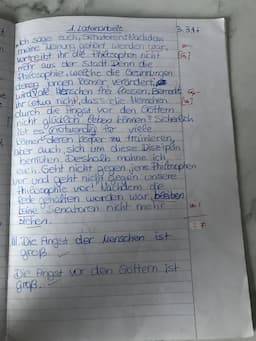 1. Lateinarbeit
3.3.17
„Ich sage euch, Senatoren! Nachdem
meine Meinung gehört worden war,
vertreibt ihr die Philosophen nicht
mehr aus der Stadt. Denn die
Philosophie, welche die Gesinnungen
junger Römer verändert,
die Menschen frei lassen. Bemerkt
ihr etwa nicht, dass die Menschen
durch die Angst vor den Göttern
nicht glücklich leben können? Sicherlich
ist es notwendig für viele
Römer deren Körper zu trainieren,
aber auch sich um diese Disziplin
bemühen. Deshalb mahne ich
euch: Geht nicht gegen jene Philosophen
vor und geht nicht gegen unsere
Philosophie vor! Nachdem die
Rede gehalten worden war, blieben
keine Senatoren nicht mehr
stehen.
III. Die Angst der Menschen ist
groß
Die Angst vor den Göttern ist
groß.